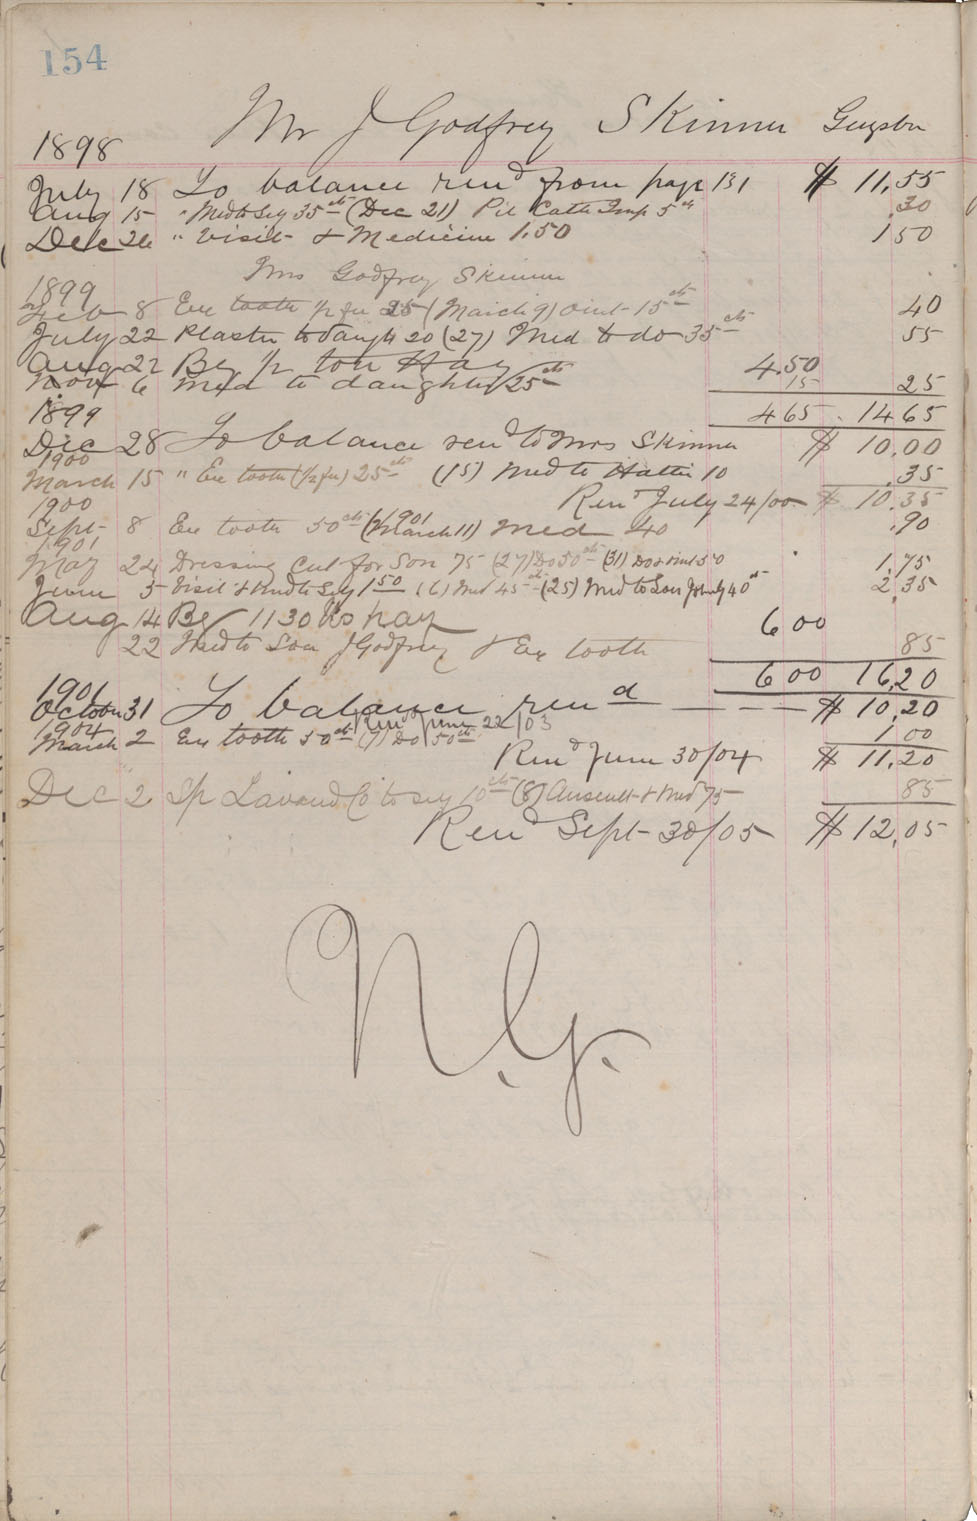 154
Mr J Godfrey Skinner Guysbor
1898
July 18 To balance rend from page 131 $ 11.55
Aug 15 " Med to Sey 35cts (Dec 21) Pil Cath Imp 5cts .30
Dec 26 " Visit & Medicine 1.50 1 50
Mrs Godfrey Skinner
1899
Feb 8 Ex tooth 1/2 fee 25 (March 9) oint 15cts 40
July 22 Plaster to daugh 20 (27) Med to do 35cts 55
Aug 22 By 1/2 ton Hay 4.50
Nov 6 Med to daughter 25cts 15 25
4 65 14 65
1899
Dec 28 To balance rend to Mrs Skinner $ 10.00
1900
March 15 " Ex tooth (1/2 fee) 25cts (15) Med to Hattie 10 .35
Rend July 24/00 $ 10.35
1900
Sept 8 Ex tooth 50cts (1901 March 11) Med 40 .90
1901
May 24 Dressing Cut for Son 75 (27) Do 50cts (31) Do & oint 50 1.75
June 5 Visit & Med to Sey 1 50 (6) Med 45cts (25) Med to Son Johnly 40cts 2.35
Aug 14 By 1130 lbs hay 6 00
22 Med to Son J Godfrey & Ex tooth 85
6 00 16.20
1901
October 31 To balance rend $ 10.20
Rend June 22/03
1904
March 2 Ex tooth 50cts (7) Do 50cts 1 00
Rend June 30/04 $ 11.20
Dec 2 Sp Lavend Co to sey 10cts (8) Auscult & Med 75 85
Rend Sept 30/05 $ 12.05
N.G.